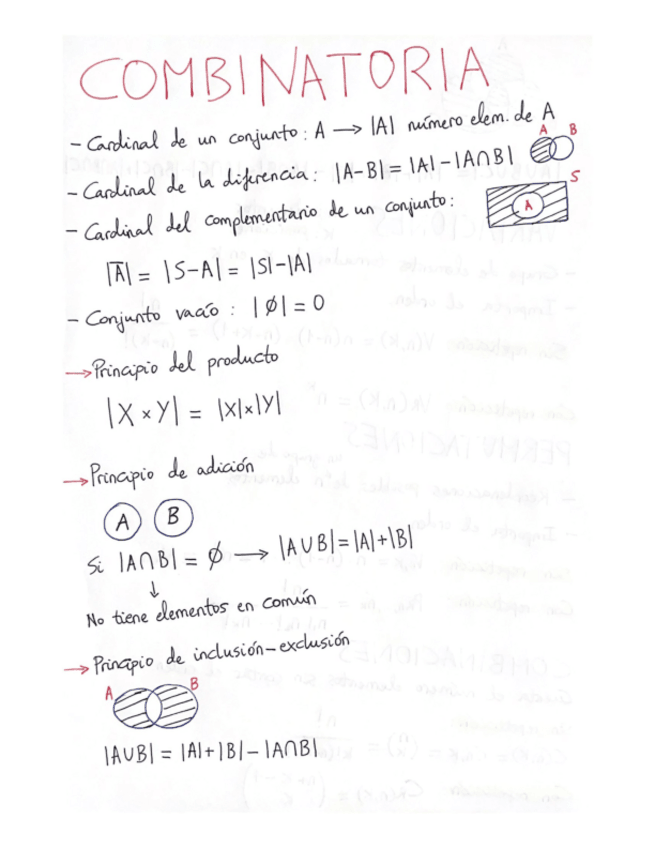 COMBINATORIA
- Cardinal de un conjunto: A → |A| número elem. de A
A B
- Cardinal de la diferencia: |A-B| = |A| - |A∩B|
- Cardinal del complementario de un conjunto:
S
A
|A̅| = |S-A| = |S|-|A|
- Conjunto vacío: |Ø| = 0
→ Principio del producto
|X × Y| = |X|×|Y|
→ Principio de adición
A B
Si |A∩B| = Ø → |A∪B| = |A|+|B|
↓
No tiene elementos en común
→ Principio de inclusión-exclusión
A B
|A∪B| = |A|+|B| - |A∩B|